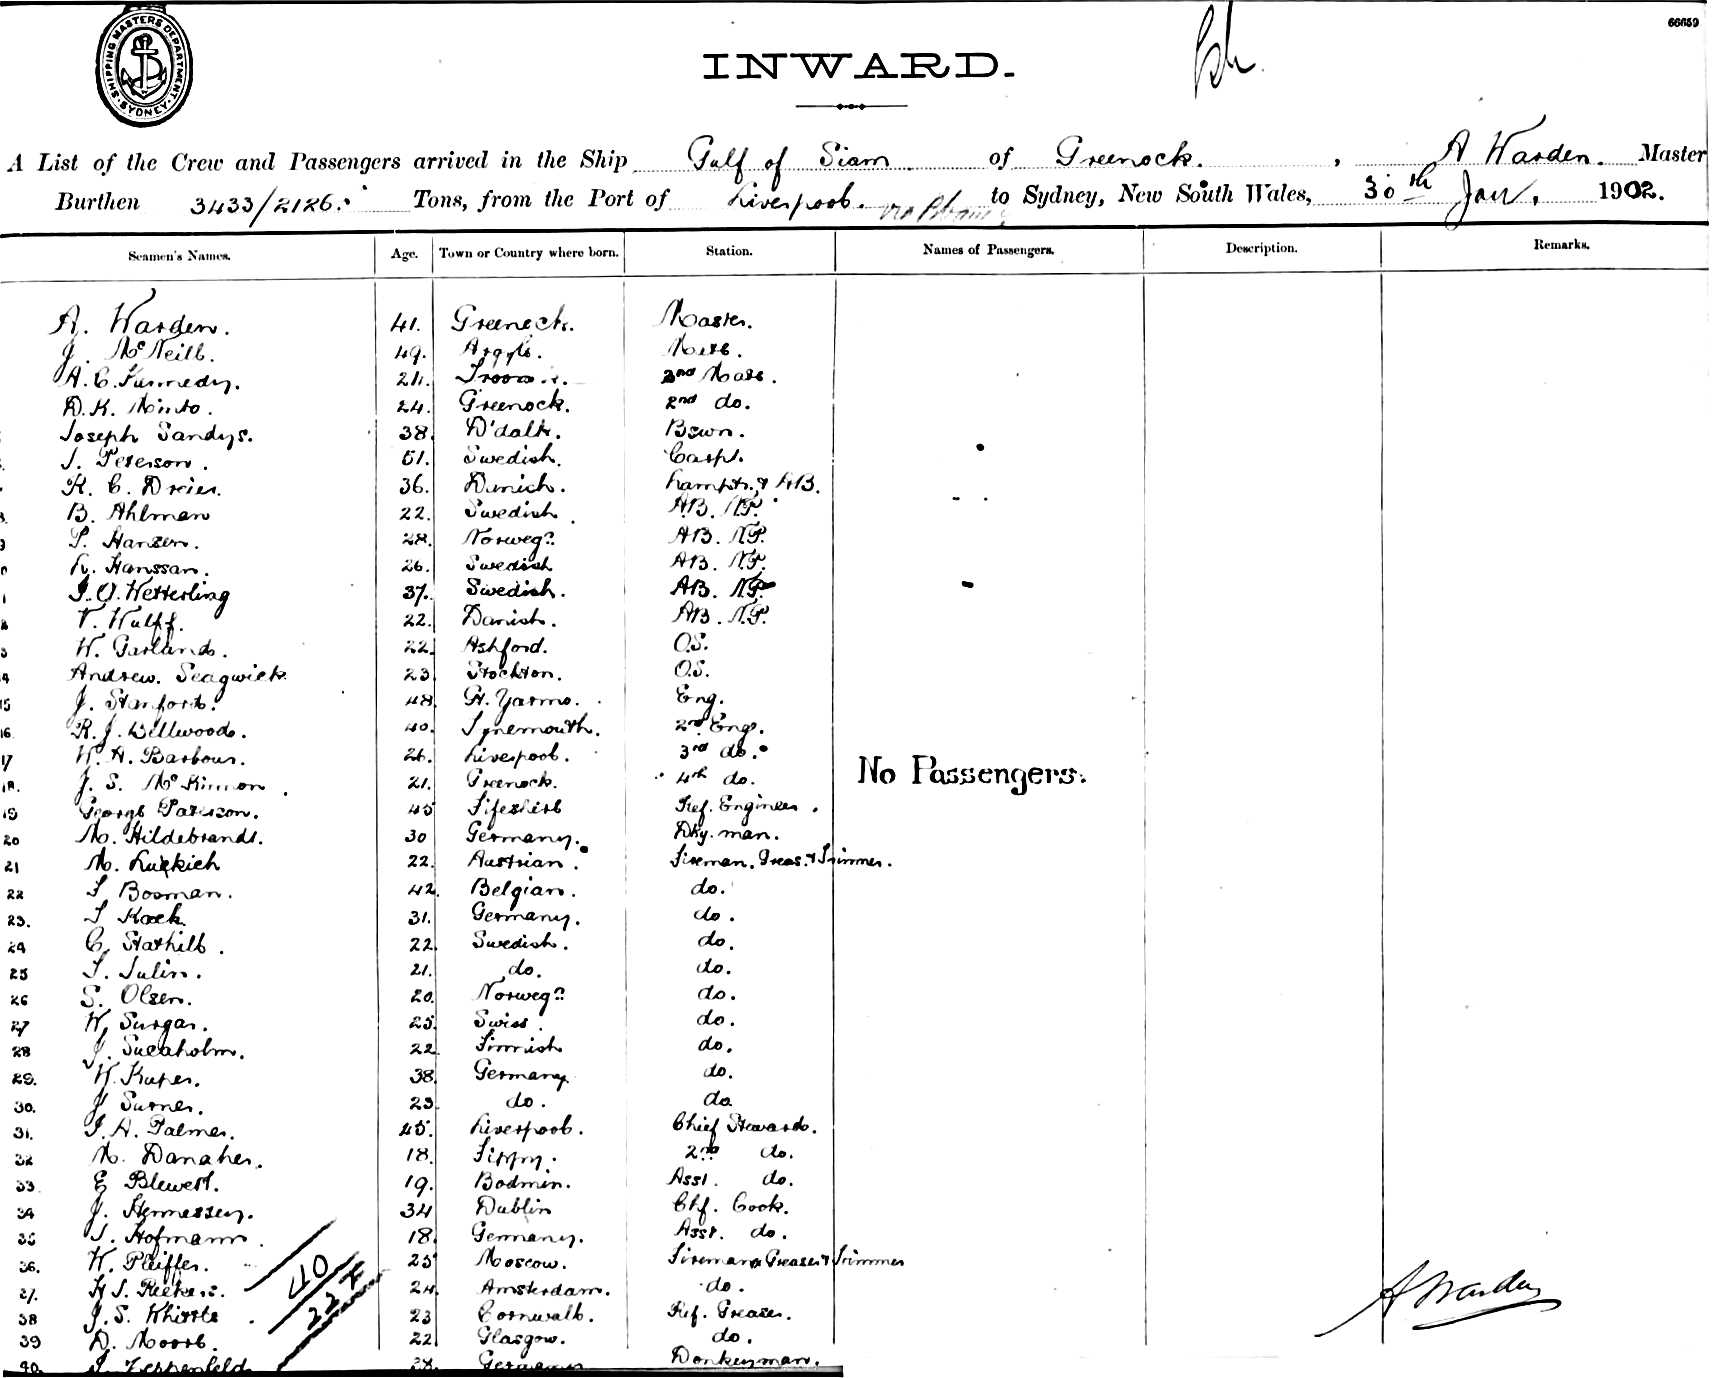 SHIPPING MASTERS DEPARTMENT. SYDNEY.
66659
INWARD.
A List of the Crew and Passengers arrived in the Ship Gulf of Siam of Greenock. , A Warden. Master
Burthen 3433/2126. Tons, from the Port of Liverpool. via to Sydney, New South Wales, 30th Jan. 1902.
Seamen's Names. Age. Town or Country where born. Station. Names of Passengers. Description. Remarks.
A. Warden. 41. Greenock. Master.
J. McNeill. 49. Argyle. Mate.
A. C. Kennedy. 24. 2nd Mate.
D. K. Minto. 24. Greenock. 2nd do.
Joseph Sandys. 38. D'dalk. Bswn.
J. Peterson. 51. Swedish. Carpt.
K. C. Dreier. 36. Danish. Lamptr. & AB.
B. Ahlman 22. Swedish. AB. NP.
P. Hansen. 28. Norwegn. AB. NP.
L. Hanssan. 26. Swedish AB. NP.
J. O. Wetterling 37. Swedish. AB. NP.
V. Wulff. 22. Danish. AB. NP.
W. Garland. 22. Ashford. O.S.
14 Andrew Seagwick 23. Stockton. O.S.
15 J. Stanford. 48. Gt. Yarmo. Eng.
16. R. J. Wellwood. 40. Tynemouth. 2nd Eng.
17 W. A. Barbour. 26. Liverpool. 3rd do.
18. J. S. McKinnon. 21. Greenock. 4th do.
No Passengers.
19 George Paterson. 45 Fifeshire Ref. Engineer.
20 M. Hildebrandt. 30 Germany. Dky. man.
21 M. Luckich 22. Austrian. Fireman, Greas. & Trimmer.
22 J Bosman. 42. Belgian. do.
23. J Kock 31. Germany. do.
24 C. Stathill. 22. Swedish. do.
25 J. Julin. 21. do. do.
26 S. Olsen. 20. Norwegn. do.
27 W. Surgar. 25. Swiss. do.
28 J. Sueaholm. 22. Finnish do.
29. W. Kuper. 38. Germany. do.
30. J Surner. 23. do. do.
31. J. A. Palmer. 45. Liverpool. Chief Steward.
32 M. Danaher. 18. Tippy. 2nd do.
33 E Blewett. 19. Bodmin. Asst. do.
34 J. Hennessey. 34 Dublin Chf. Cook.
35 J. Hofmann. 18. Germany. Asst. do.
36. W. Pfeiffer. 25 Moscow. Fireman Greaser & Trimmer
37. H J. Riekers. 24. Amsterdam. do.
38 J. S. Whittle. 23 Cornwall. Ref. Greaser.
39 D. Moore. 22. Glasgow. do.
40. J. Zeppenfeld 38. Germany Donkeyman.
40
A Warden